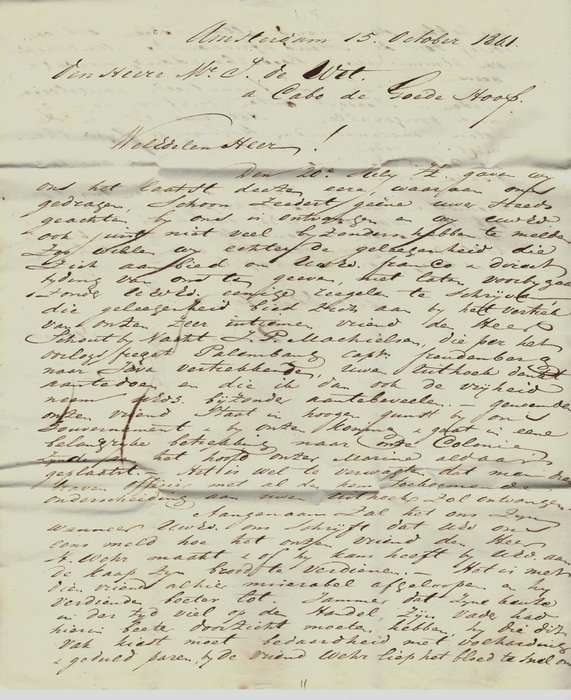 Amsterdam 15 October 1841.
Den Heere Mr. J. de Wet.
a Cabo de Goede Hoop.
WelEdelen Heer!
Den 20e July gaven wy
ons het laatst deeze eere, waaraan ons
gedragen, Schoon Zeedert geene uwer Steeds
geachten by ons is ontvangen en wy UwEd
ook juist niet veel byzonders hebben te melden
Zoo willen wy echter de geleegenheid die
Zich aanbied om UwEd. franco & direct
tyding van ons te geven, niet laten voorbygaan
Zonder UwEd. eenige regelen te Schryven
die geleegenheid bied zich aan by het vertrek
van onzen zeer intiemen vriend de Heer
Schout by Nacht J. P. Machielsen, die per het
oorlogs fregat Palembang capt.
naar Java vertrekkende, Uwen uithoek denkt
aantedoen en die ik dan ook de vryheid
neem UwEd byzonder aantebeveelen. - gemelden
onzen vriend Staat in hoogen gunst by ons
Gouvernement & by onzen Koning & gaat in eene
belangryke betrekking naar Colonien
het hoofd onzer Marine aldaar
geplaatst - Het is wel te verwagten dat men
officier met al de hem
onderscheiding aan uwen uithoek Zal ontvangen.
Aangenaam Zal het ons Zyn
wanneer UwEd. ons Schryft dat UEd ons
eens meld hoe het onzen vriend den Heer
Wehr maakt & of hy kans heeft by UEd. aan
de Kaap Zyn brood te verdienen. - Het is met
dien vriend alhier miserabel afgeloopen en hy
verdiende beeter lot, Jammer dat Zyne keuze
in der tyd viel op de Handel, Zyn vader had
hierin beete doorzicht moeten hebben, die dit
vak kiest moet bedaardheid met volharding
& geduld paren, by de vriend Wehr liep het bloed te snel om